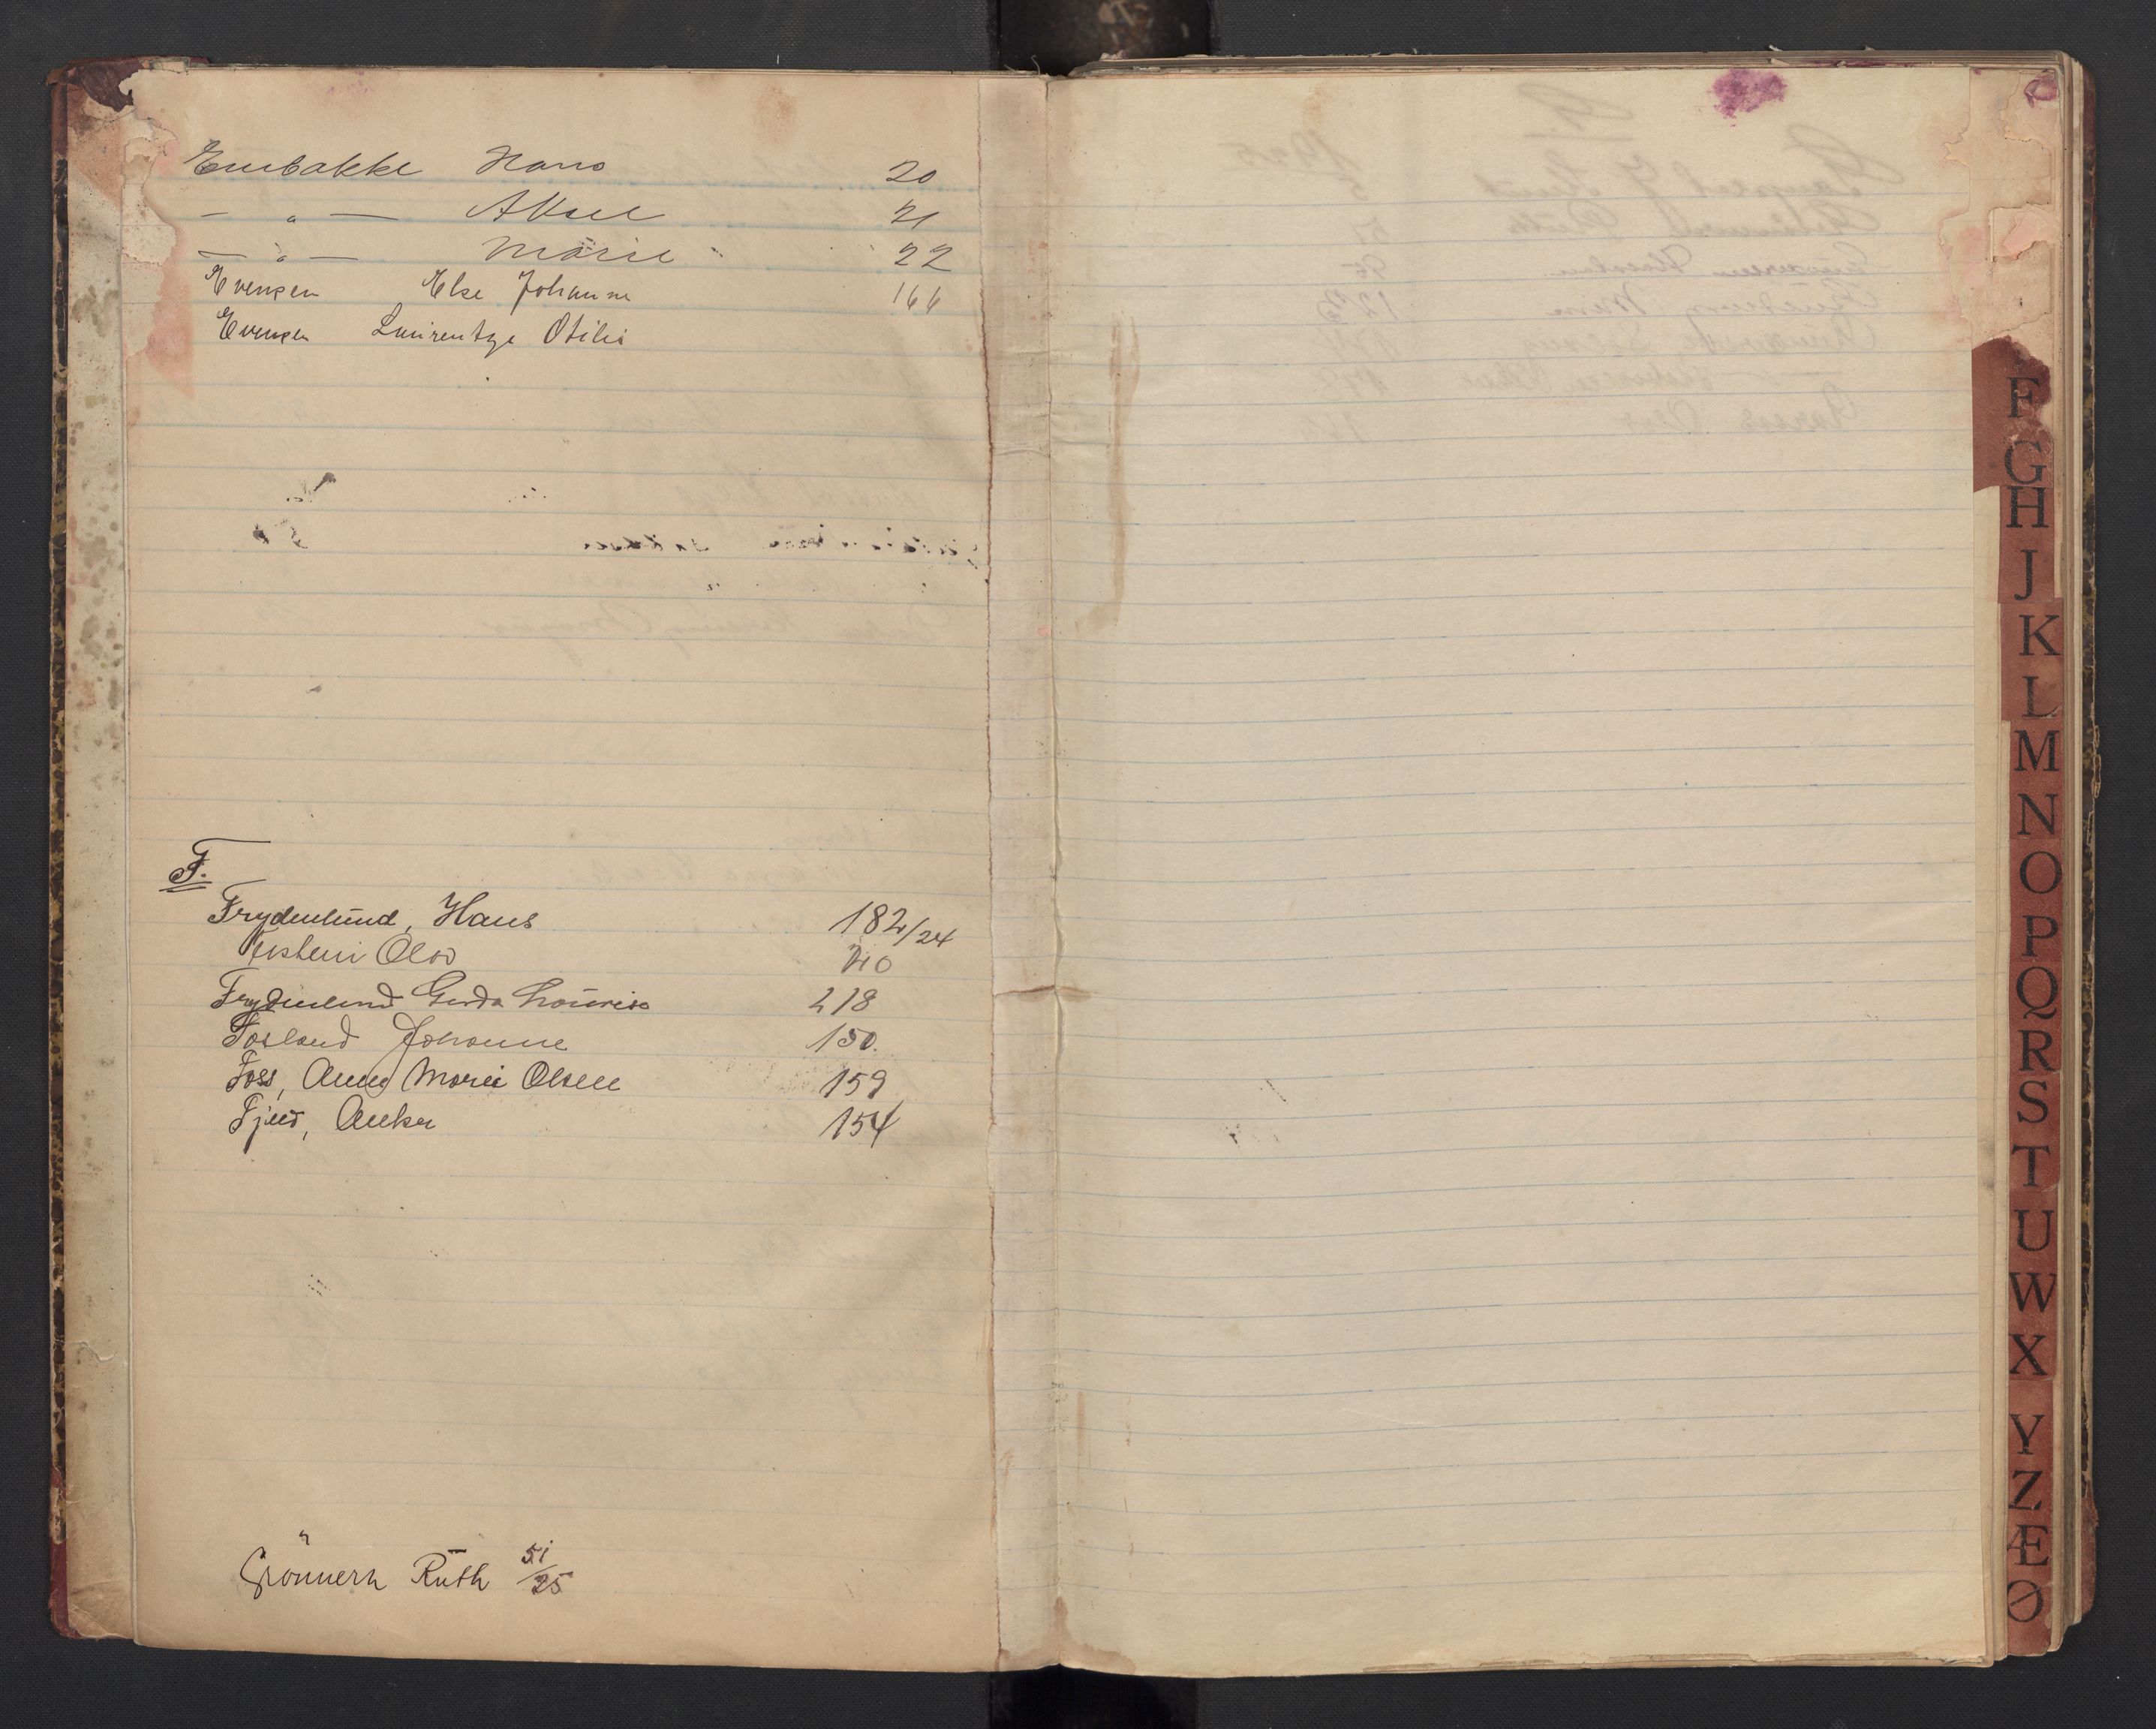 Embakke Hans 20
— " — Aksel 21
— " — Marie 22
Evensen Else Johanne 166
Evensen Laurentze Otilie
F.
Frydenlund, Hans 182/24
Olav 210
Frydenlund Gerda Lovise 218
Fosland Johanne 150.
Foss, Anny Marie Olsen 159
Fjeld, Anker 154
Grönnerh Ruth 51/25
F
G
H
J
K
L
M
N
O
P
Q
R
S
T
U
W
X
Y
Z
Æ
Ø